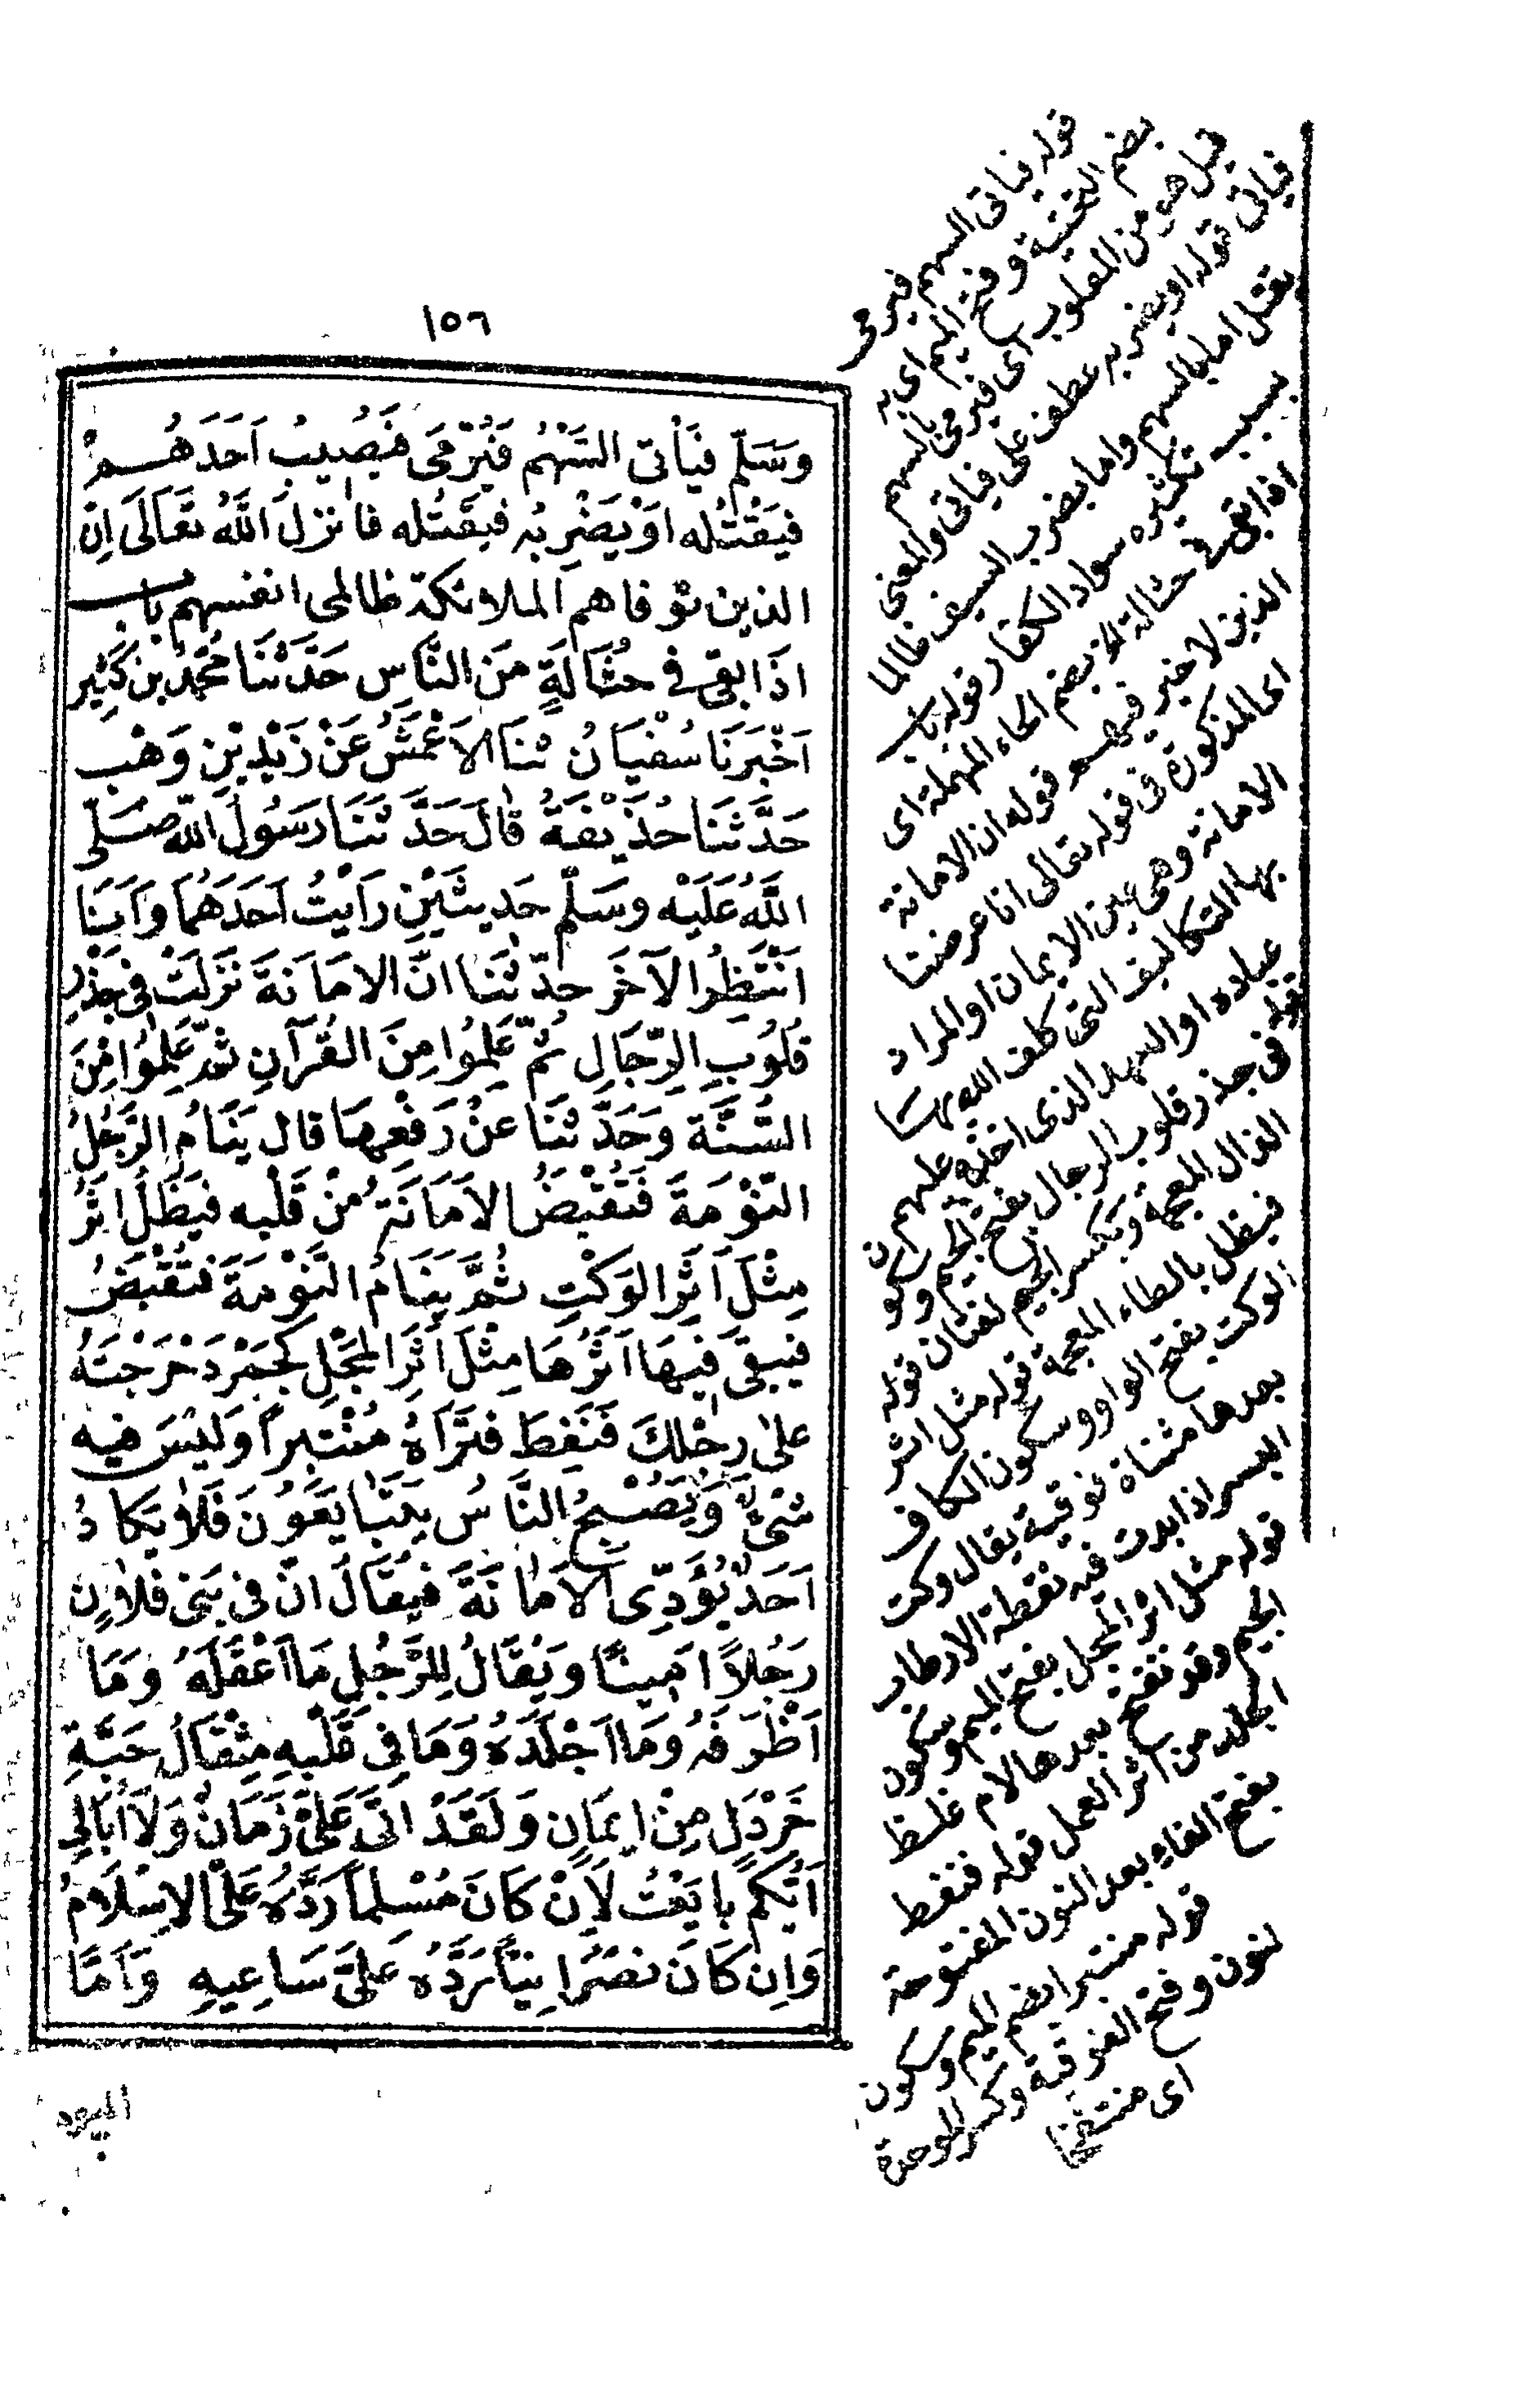 ١٥٦
وَسَلّم فيَأتى السَّهْمُ فَيُرْمَى فَيُصِيبُ اَحَدَهُمْ
فيَقْتُلُه اَوْ يَضْرِبُه فيَقتُله فانزلَ اللّٰهُ تَعَالَى اِنّ
الذين توفاهم الملائكة ظالمى انفسهم باب
اذَا بقى فى حُثَالَةٍ مَن النَّاسِ حَدَّثنَا مُحَمَّدُ بن كَثِير
اَخْبَرَنَا سُفْيَانُ ثنَا الاَعْمَشُ عَنْ زَيْدِ بْنِ وَهْب
حَدَّثَنَا حُذَيْفَةُ قالَ حَدَّثَنَا رَسُولُ اللّٰه صَلّى
اللّٰهُ عَلَيْه وسَلّم حَدِيثَيْنِ رَاَيْتُ اَحَدَهُمَا وَاَنَا
اَنْتَظِرُ الآخَرَ حدّثنَا انَّ الامَانَةَ نَزَلَتْ فى جَذْرِ
قُلُوبِ الرِّجَالِ ثُمّ عَلِمُوا مِنَ القُرآنِ ثمّ عَلِمُوا مِنَ
السُّنَّة وَحَدّثنَا عَنْ رَفْعِهَا قال يَنَامُ الرَّجُلُ
النّوْمَةَ فَتُقْبَضُ الاَمَانَةُ مِنْ قَلْبه فيَظَلُّ اثَرُ
مِثْلَ اَثَرِ الوَكْتِ ثُمَّ يَنَامُ النَّوْمَةَ فتُقْبَضُ
فيَبقَى فيهَا اَثَرُهَا مِثْلَ اَثَرِ المَجْلِ كَجَمْرٍ دَحْرَجْتَهُ
علَى رِجْلِكَ فَنَفِطَ فتَرَاهُ مُنْتَبِرًا وَلَيْسَ فيه
شىْءٌ وَيُصْبِحُ النَّاسُ يَتَبَايَعُونَ فَلَا يَكَادُ
اَحَدٌ يُؤَدِّى الاَمَانَةَ فيُقَالُ انّ فى بَنى فلانٍ
رَجُلاً اَمِينًا وَيُقَالُ لِلرَّجُلِ مَا اَعْقَلَهُ وَمَا
اَظْرَفَهُ وَمَا اَجْلَدَهُ وَمَا فِى قَلْبِهِ مِثْقَالُ حَبَّةِ
خَرْدَلٍ مِنْ ايمَانٍ وَلَقَدْ اَتَى عَلَىَّ زَمَانٌ وَلَا اُبَالِى
اَيُّكمْ بايَعْتُ لَئِنْ كَانَ مُسْلِماً رَدَّهُ عَلَىَّ الاِسْلَامُ
وَاِن كَانَ نَصْرَانِيّاً رَدَّهُ عَلَىَّ سَاعِيهِ وَاَمَّا
قوله فيأتى السهم فيرمى
بضم التحتية وفتح الميم اى به
قيل هو من المقلوب اى فيرمى بالسهم
فيأتى قوله او يضربه عطف على فيأتى والمعنى
يقتل اما بالسهم واما بضرب السيف ظالما
بسبب تكثيره سواد الكفار قوله باب
اذا بقى فى حثالة الخ بضم الحاء المهملة اى
الذين لا خير فيهم قوله ان الامانة
اى المذكورة فى قوله تعالى انا عرضنا
الامانة وهى عين الايمان او المراد
بها التكاليف التى كلف الله بها
عباده او العهد الذى اخذه عليهم
قوله فى جذر قلوب الرجال بفتح الجيم وسكون
الذال المعجمة وبكسر الجيم لغتان قوله
فيظل بالظاء المعجمة قوله مثل اثر
الوكت بفتح الواو وسكون الكاف
بعدها مثناة فوقية يقال وكت
البسر اذا بدت فيه نقطة الارطاب
قوله مثل اثر المجل بفتح الميم وسكون
الجيم وقد تفتح بعدها لام غلظ
الجلد من اثر العمل قوله فنفط
بفتح الفاء بعد النون المفتوحة
قوله منتبرا بضم الميم وسكون
لنون وفتح الفوقية وكسر الموحدة
اى منتفخا